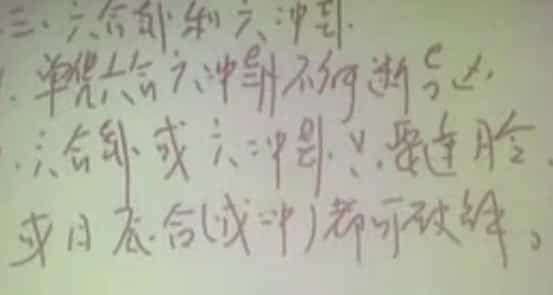 三、六合卦和六冲卦.
单凭六合六冲卦不何断吉凶.
六合卦或六冲卦.只要逢月令
或日辰合(或冲)都可破解。